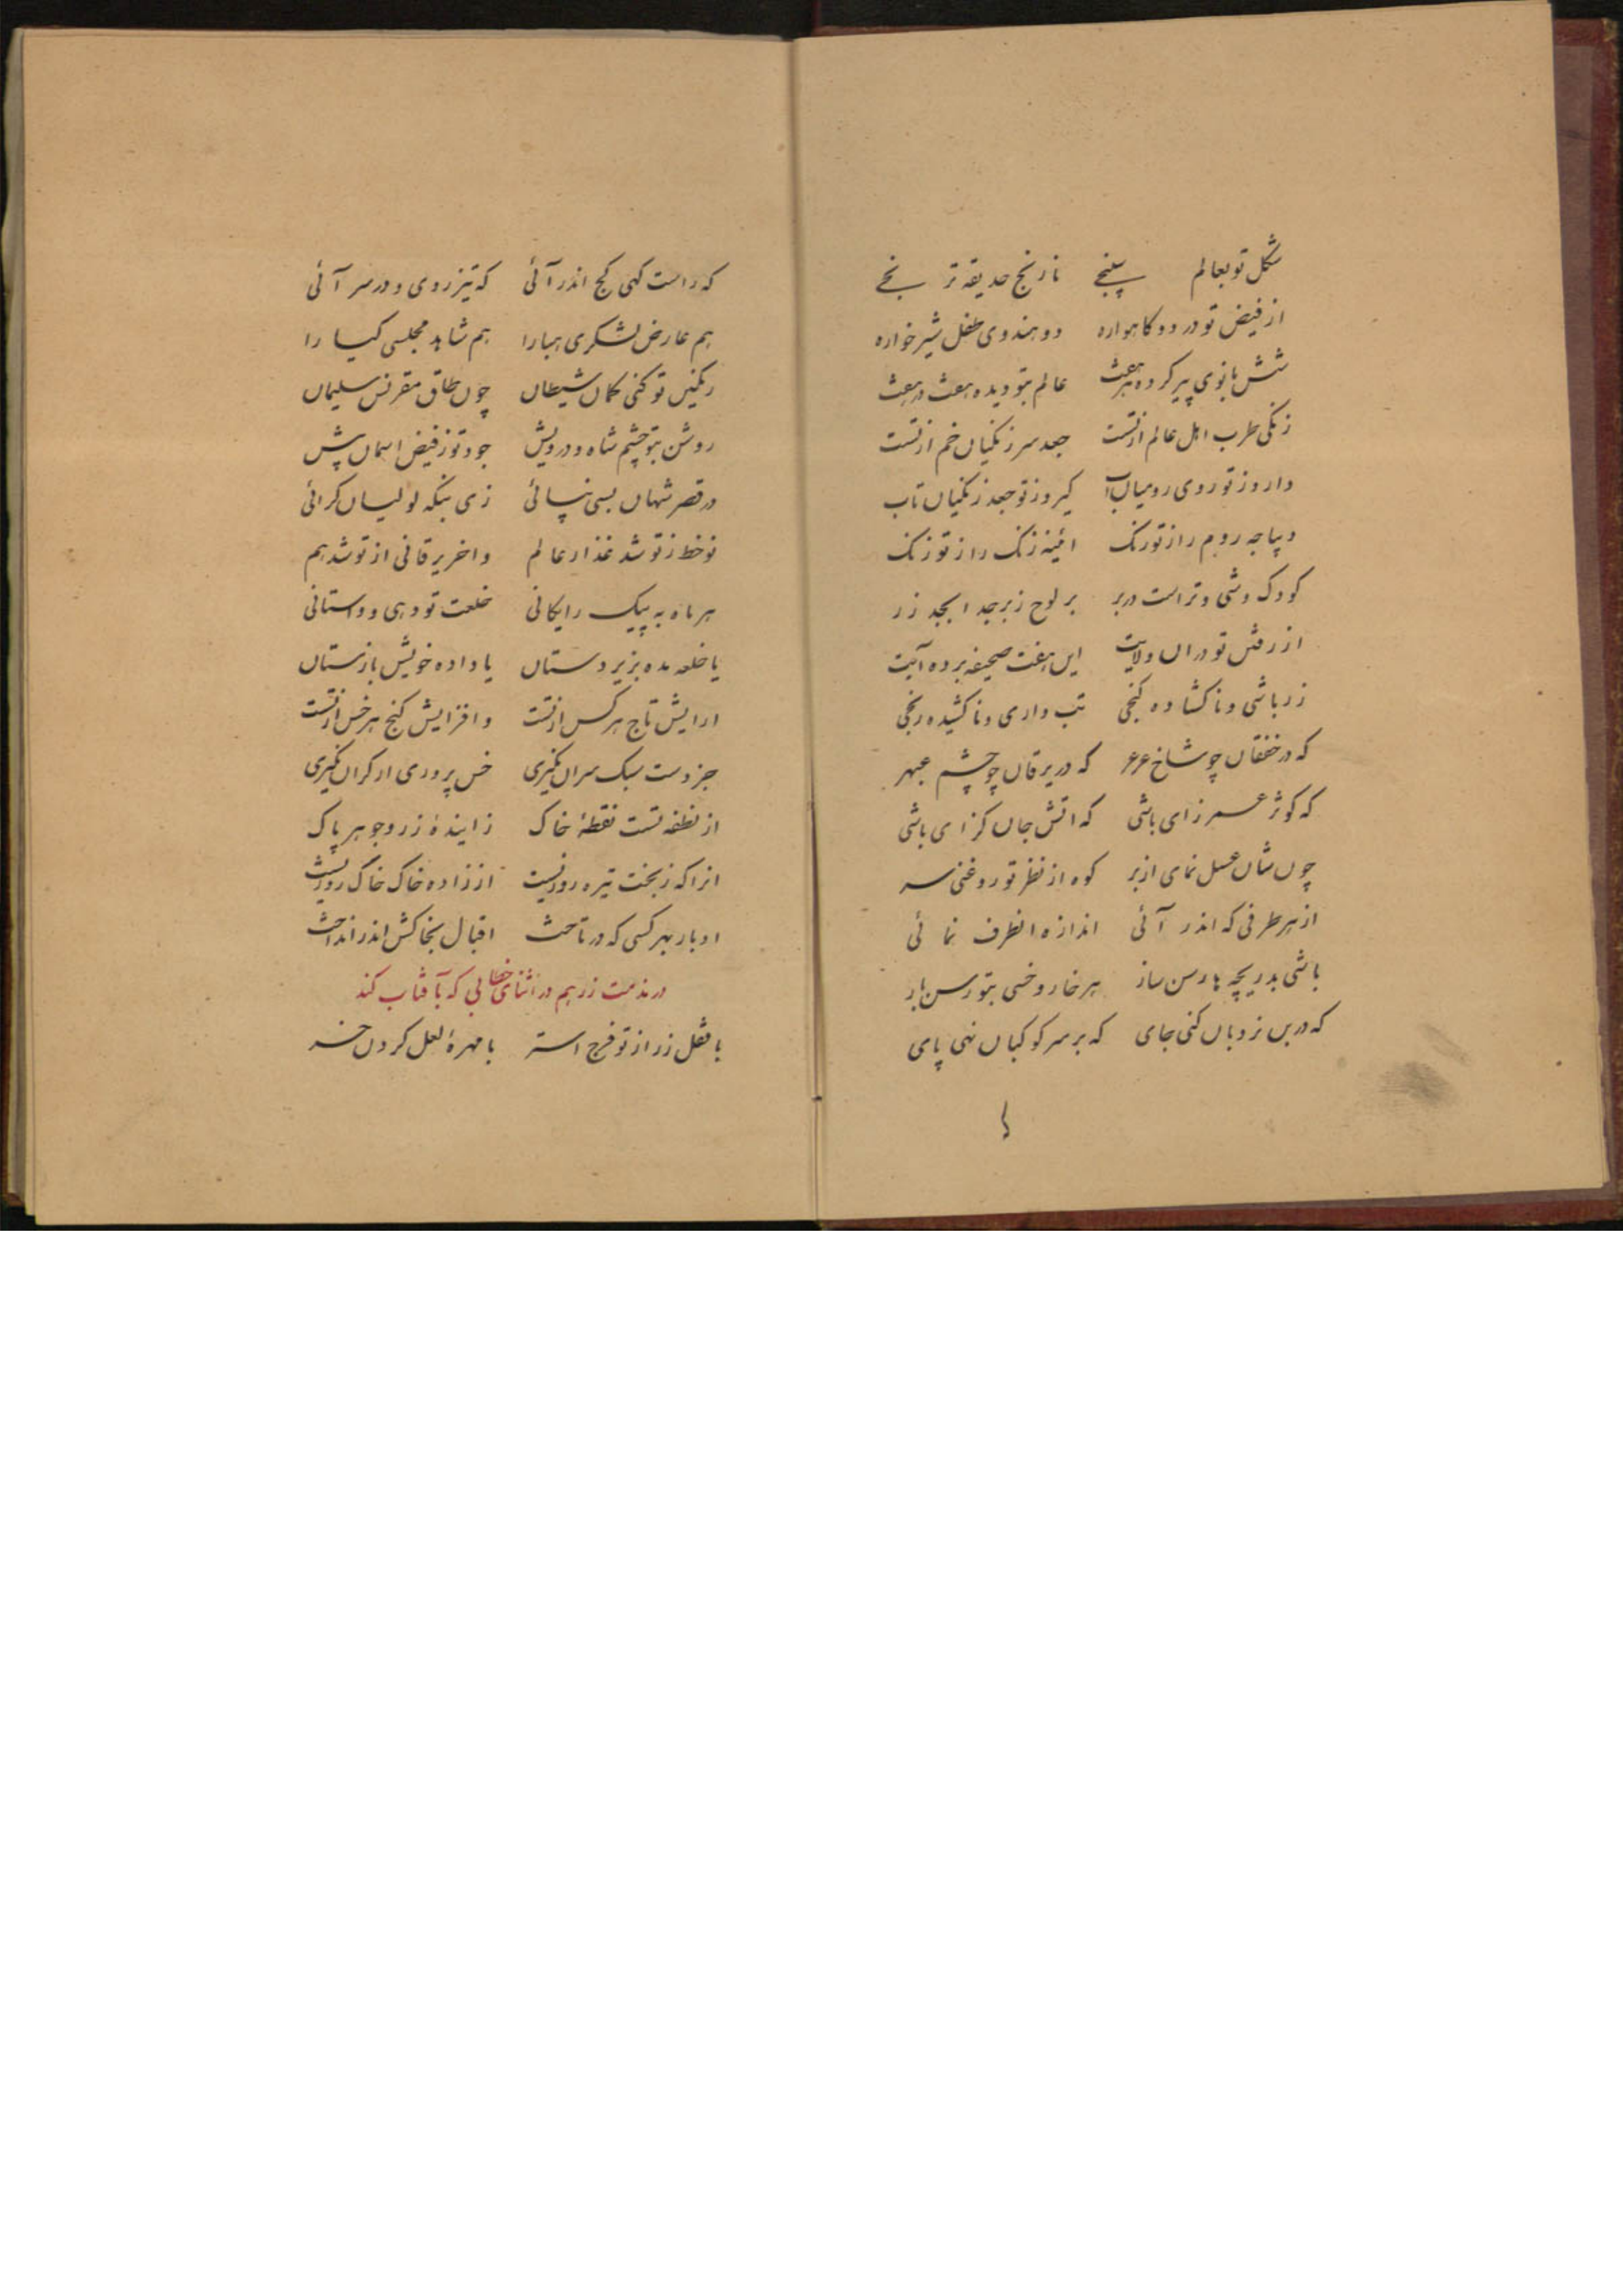 شکل تو بعالم سپنجے نارنج حدیقه ترنجے
از فیض تو در دو کاهواره دو هندوی طفل شیرخواره
شش بانوی پیر کرده هرهفت عالم بتو دیده هفت در هفت
زنکی طرب اهل عالم از تست جعد سر زنکیاں خم از تست
دارو ز تو روی رومیاں آب کیرو ز تو جعد زنکیاں تاب
دیباجه روم راز تو رنک ائینه زنک راز تو زنک
کودک وشی و تراست دربر بر لوح زبرجد ابجد زر
از رفتں تو دراں ولایت ایں هفت صحیفه برده آیت
زرباشی و ناکشاده کنجی تب داری و ناکشیده رنجی
که در خفقاں چو شاخ عرعر که در یرقاں چو چشم عبهر
که کوثر عمر زای باشی که اتش جاں کزای باشی
چوں شاں عسل نمای از بر کوه از نظر تو روغنی سر
از هر طرفی که اندر آئی اندازه انطرف نمائی
باشی بدریچه ها رسن ساز هر خار و خسی بتو رسن باز
که دربں نردباں کنی جای که بر سر کوکباں نهی پای
که راست کهی کج اندر آئی که تیز روی و در سر آئی
هم عارض لشکری هبا را هم شاهد مجلسی کیا را
رنکیں تو کنی کماں شیطاں چوں طاق مقرنس سلیماں
روشن بتو چشم شاه و درویش جود تو ز فیض اسماں پیش
در قصر شهاں بسی نپائی زی بنکه لولیاں کرائی
نوخط ز تو شد عذار عالم واخر یرقانی از تو شد هم
هر ماه به پیک رایکانی خلعت تو دهی و واستانی
یا خلعه مده بزیردستاں یا داده خویش باز مستاں
ارایش تاج هر کس از تست وافزایش کنج هر خس از تست
جز دست سبک سراں نکیری خس پروری ار کراں نکیری
از نطفه تست نقطۀ خاک زایندۀ زر و جوهر پاک
انرا که ز بخت تیره روزیست از زاده خاک خاک روزیست
ادبار بهر کسی که در تاخت اقبال بخاکش اندر انداخت
در مذمت زر هم در اثنای خطابی که بآفتاب کند
با ثقل زر از تو فرج استر با مهرۀ لعل کردں خر